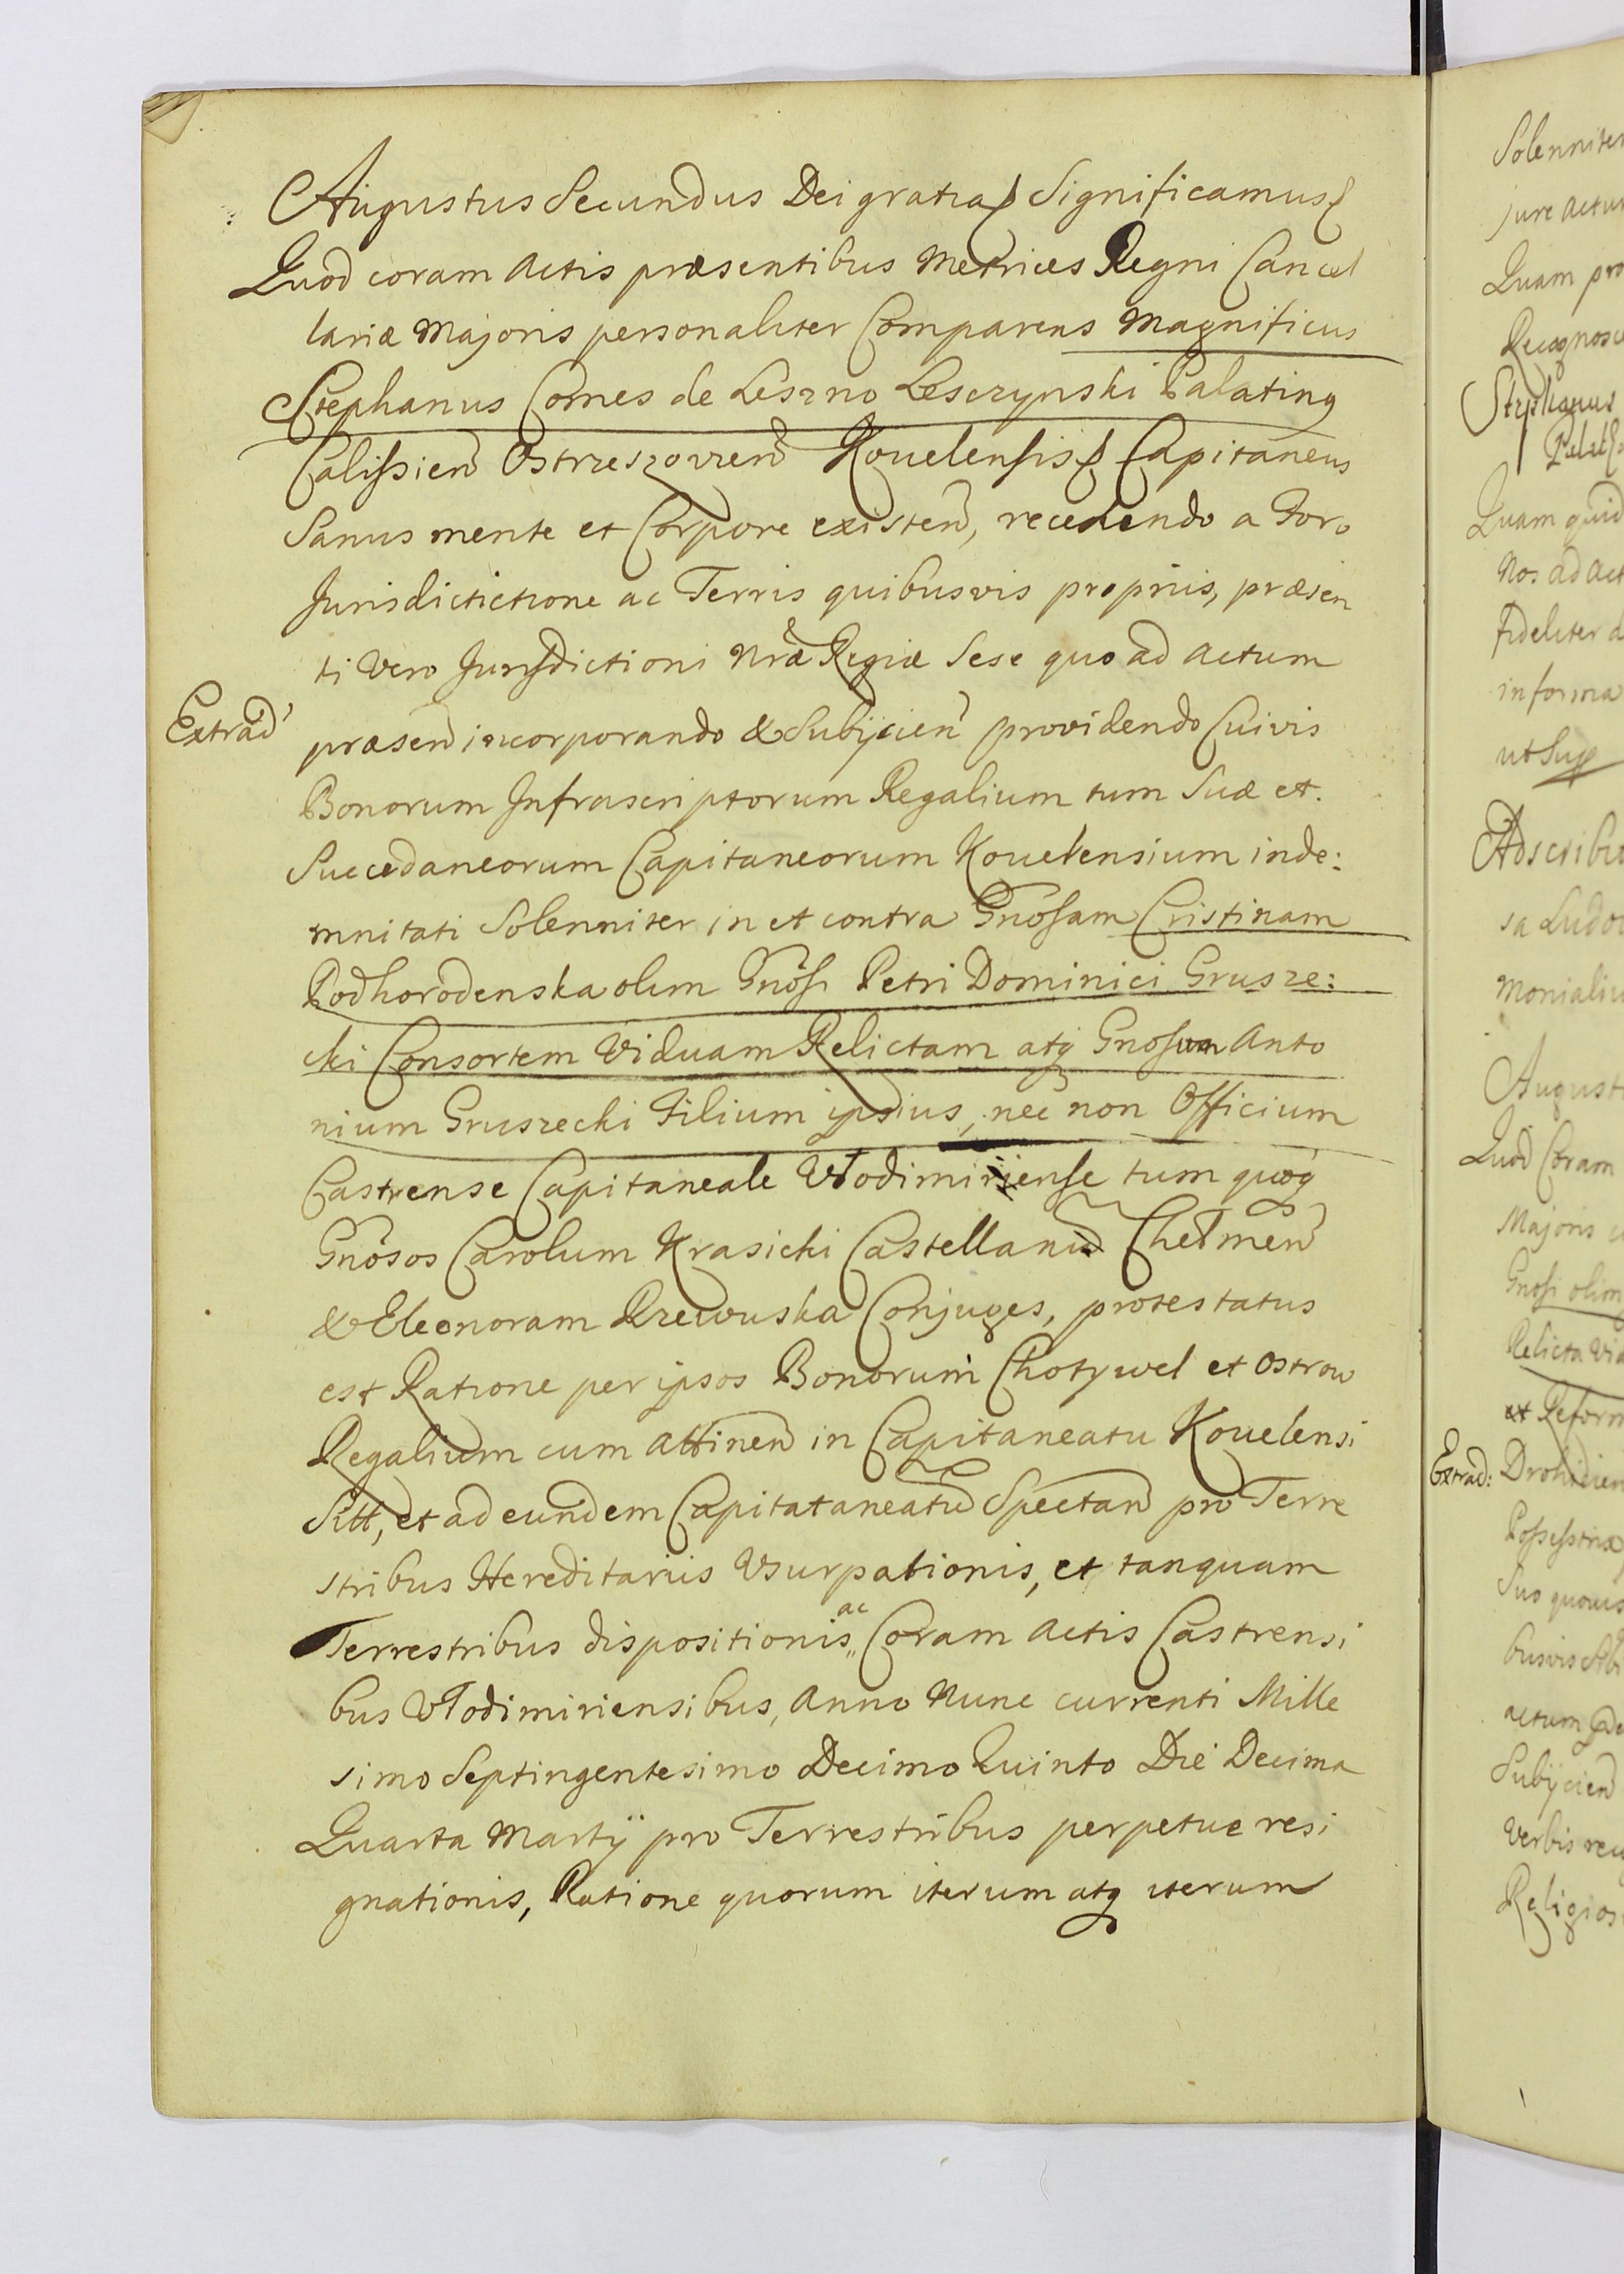 Augustus Secundus Dei gratia Significamus
Quod coram Actis præsentibus Metrices Regni Cancel
lariæ Majoris personaliter Comparens Magnificus
Stephanus Comes de Leszno Lesczynski Palatinꝯ
Calissien Ostrzeszovien Kouelensis Capitaneus
Sanus mente et Corpore existen, recedendo a Foro
Jurisdictictione ac Terris quibusvis proprijs, præsen
ti Vero Jurisdictioni Nræ Regiæ Sese quo ad Actum
Extrad
præsen incorporando & Subijcien providendo Cuivis
Bonorum Infrascriptorum Regalium tum Suæ et
Succedaneorum Capitaneorum Kouelensium inde:
mnitati Solenniter in et contra Gnosam Cristinam
Podhorodenska olim Gnosi Petri Dominici Grusze:
cki Consortem Viduam Relictam atq Gnosum Anto
nium Gruszecki Filium ipsius, nec non Officium
Castrense Capitaneale Włodimiriense tum quoq
Gnosos Carolum Krasicki Castellanum Chełmen
& Eleonoram Rzewuska Conjuges, protestatus
est Ratione per ipsos Bonorum Chotywel et Ostrow
Regalium cum Attinen in Capitaneatu Kouelensi
Sitt, et ad eundem Capitataneatum Spectan pro Terre
stribus Hereditarijs Usurpationis, et tanquam
Terrestribus dispositionis ac Coram Actis Castrensi
bus Włodimiriensibus, Anno Nunc currenti Mille
simo Septingentesimo Decimo Quinto Die Decima
Quarta Martij pro Terrestribus perpetuæ resi
gnationis, Ratione quorum iterum atq iterum
Solenniter
jure Actu
Quam pro
Recognos
Stephanus
Quam quid
Nos ad Act
fideliter
in forma
ut Sup
Adscribi
sa Ludo
Monialiu
August
Quod Coram
Majoris
Gnosi olim
Relicta Vid
et Reform
Extrad:
Possestrix
Suo quovis
busvis
actum
Subijcien
Verbis rec
Religios